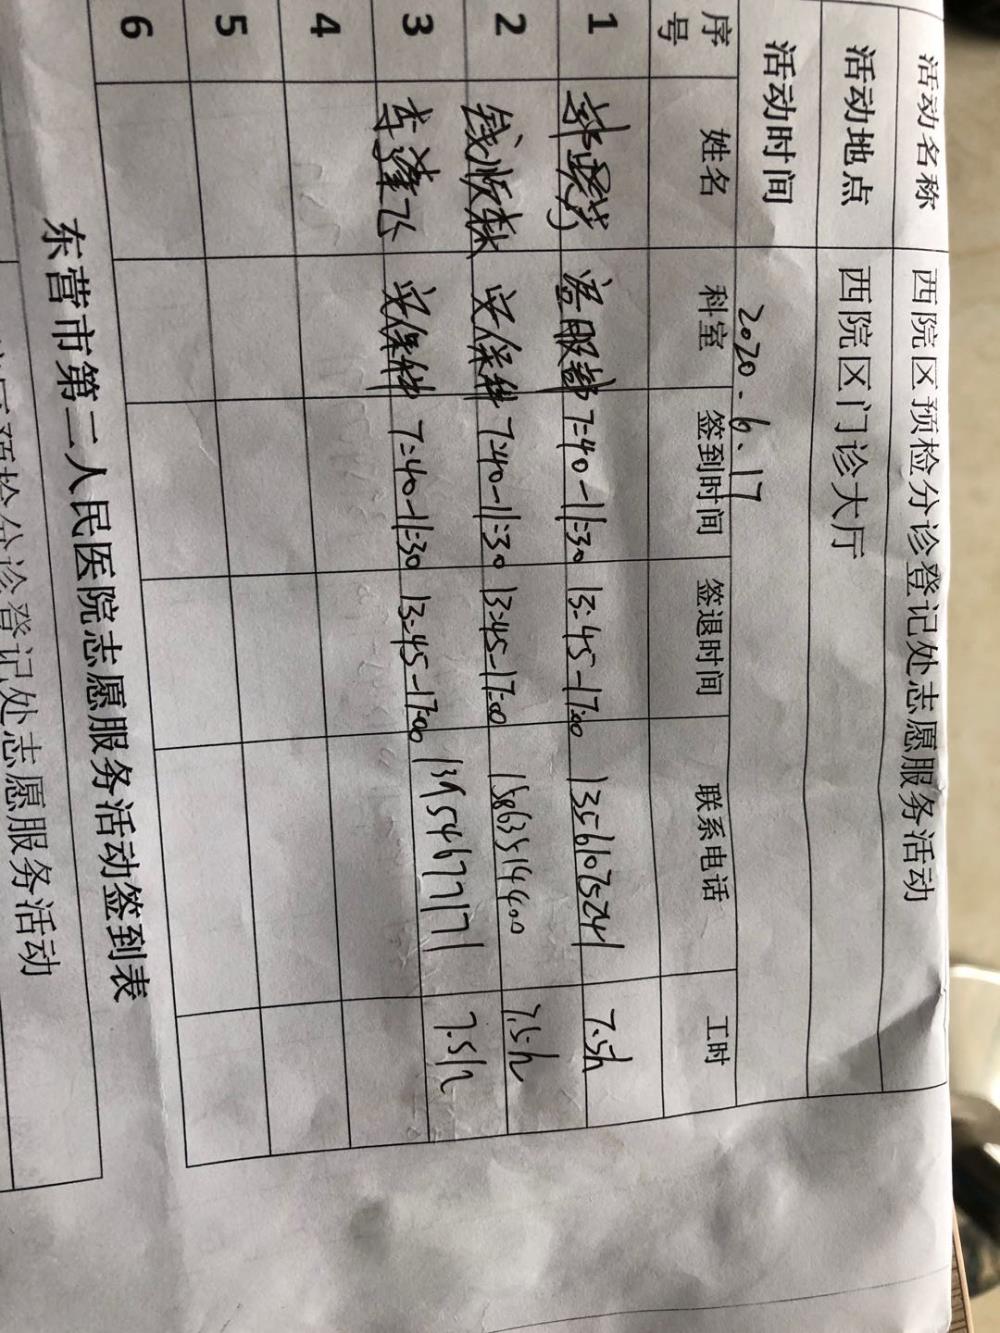 活动名称 西院区预检分诊登记处志愿服务活动
活动地点 西院区门诊大厅
活动时间 2020.6.17
序号 姓名 科室 签到时间 签退时间 联系电话 工时
1 客服部 7:40-11:30 13:45-17:00 13561075241 7.5h
2 钱顺林 安保科 7:40-11:30 13:45-17:00 15863514400 7.5h
3 李 安保科 7:40-11:30 13:45-17:00 13954677171 7.5h
4
5
6
东营市第二人民医院志愿服务活动签到表
预检分诊登记处志愿服务活动